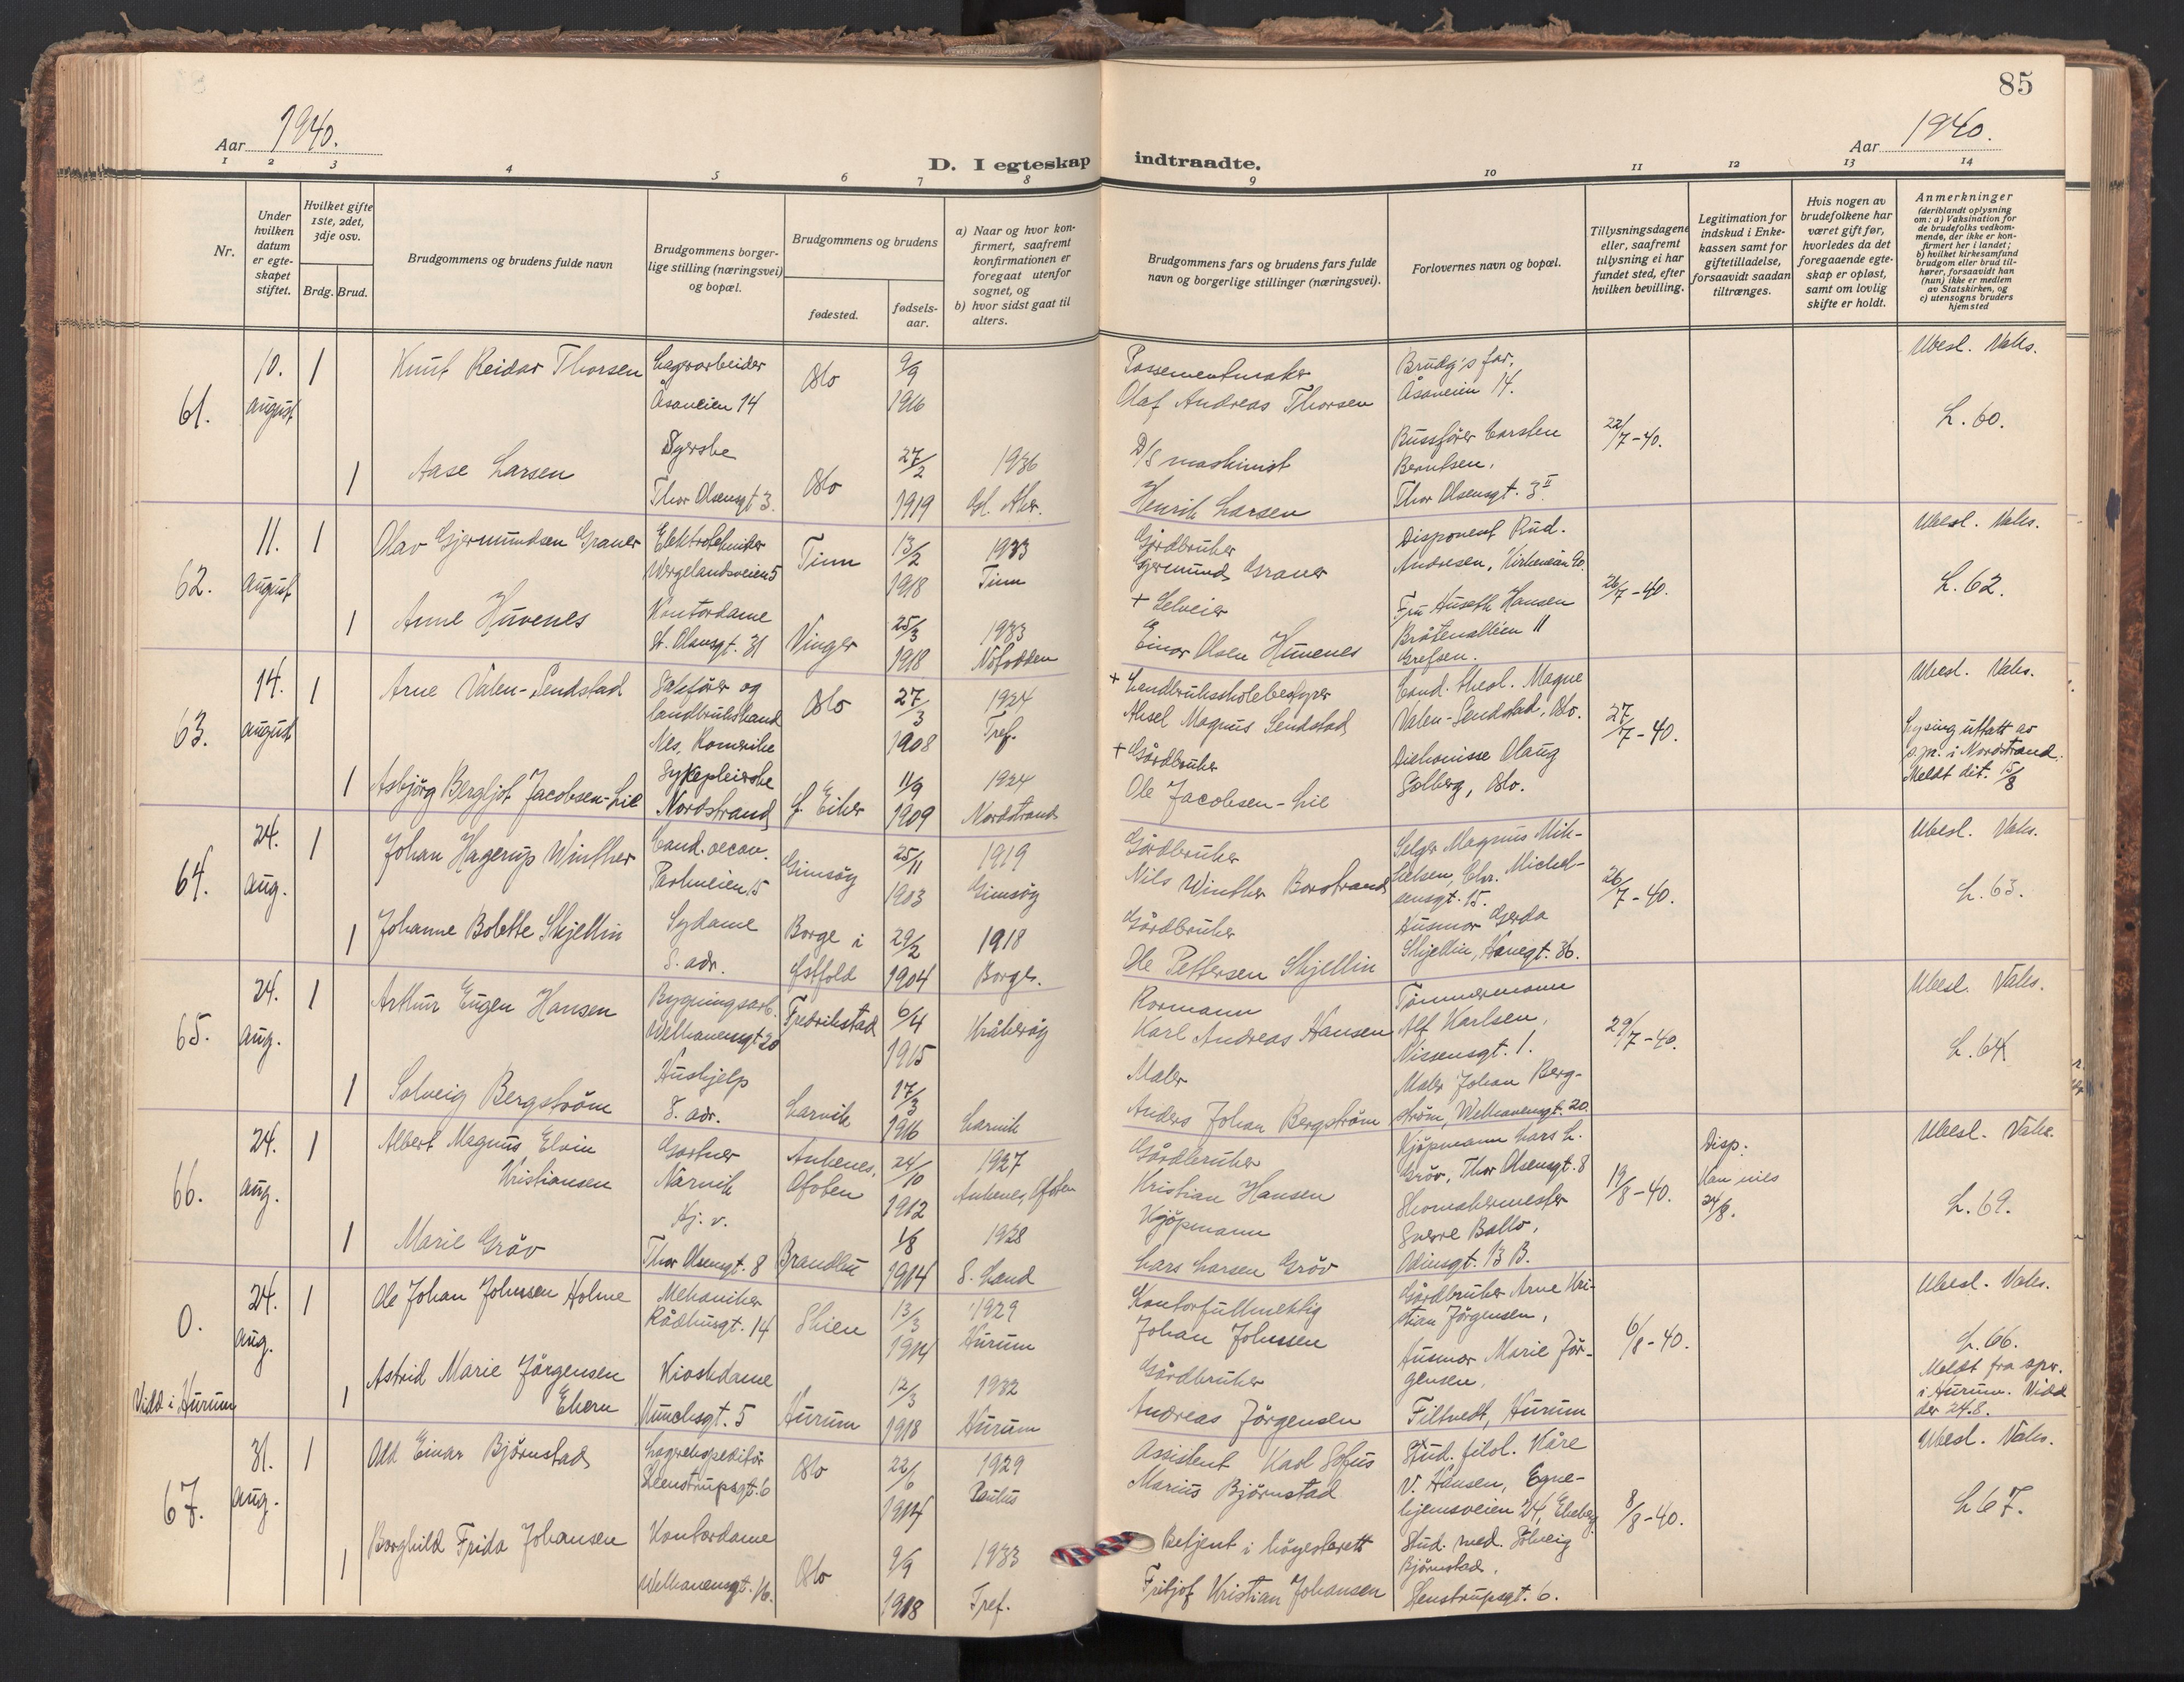 85
Aar 1940.
D. I egteskap indtraadte.
Aar 1940.
1 2 3 4 5 6 7 8 9 10 11 12 13 14
Nr.
Under hvilken datum er egteskapet stiftet.
Hvilket gifte 1ste, 2det, 3dje osv.
Brdg. Brud.
Brudgommens og brudens fulde navn
Brudgommens borgerlige stilling (næringsvei) og bopæl.
Brudgommens og brudens
fødested.
fødselsaar.
a) Naar og hvor konfirmert, saafremt konfirmationen er foregaat utenfor sognet, og
b) hvor sidst gaat til alters.
Brudgommens fars og brudens fars fulde navn og borgerlige stillinger (næringsvei).
Forlovernes navn og bopæl.
Tillysningsdagene eller, saafremt tillysning ei har fundet sted, efter hvilken bevilling.
Legitimation for indskud i Enkekassen samt for giftetilladelse, forsaavidt saadan tiltrænges.
Hvis nogen av brudefolkene har været gift før, hvorledes da det foregaaende egteskap er opløst, samt om lovlig skifte er holdt.
Anmerkninger
(deriblandt oplysning om: a) Vaksination for de brudefolks vedkommende, der ikke er konfirmert her i landet; b) hvilket kirkesamfund brudgom eller brud tilhører, forsaavidt han (hun) ikke er medlem av Statskirken, og c) utensogns bruders hjemsted
61.
10. august
1
Knut Reidar Thorsen
Lagerarbeider
Åsaveien 14
Oslo
9/9 1916
Possementmaker
Olaf Andreas Thorsen
Brudg's far,
Åsaveien 14.
22/7-40.
Ubesl. Vaks.
L. 60.
1
Aase Larsen
Syerske
Thor Olsensgt 3.
Oslo
27/2 1919
1936
Gl. Aker.
D/S maskinist
Henrik Larsen
Bussfører Carsten
Berntsen,
Thor Olsensgt. 3 II
62.
11. august
1
Olav Gjermundsen Graver
Elektrotekniker
Wergelandsveien 5
Tinn
13/2 1918
1933
Tinn
Gårdbruker
Gjermund Graver
Disponent Rud.
Andresen, Kirkeveien 90.
26/7-40.
Ubesl. Vaks.
L. 62.
1
Anne Huvenes
Kontordame
St. Olavsgt. 31
Vinger
25/3 1918
1933
Notodden
+ Selveier
Einar Olsen Huvenes
Fru Huseth Hansen
Bråtenalleen 11
Grefsen.
63.
14. august
1
Arne Valen-Sendstad
Sakfører og
landbrukskand
Nes, Romerike
Oslo
27/3 1908
1924
Tref.
+ Landbruksskolebestyrer
Aksel Magnus Sendstad
Cand. theol. Magne
Valen-Sendstad, Oslo.
27/7-40.
Ubesl. Vaks.
Lysing uttatt av
spr. i Nordstrand.
Meldt dit. 15/8
1
Asbjörg Bergljot Jacobsen-Lie
Sykepleierske
Nordstrand
Ø. Eiker
11/9 1909
1924
Nordstrand
+ Gårdbruker
Ole Jacobsen-Lie
Diakonisse Olaug
Solberg, Oslo.
64.
24. aug.
1
Johan Hagerup Winther
Cand. oecon.
Parkveien 15
Gimsøy
25/11 1903
1919
Gimsøy
Gårdbruker
Nils Winther Borstrand
Selger Magnus Mik-
kelsen, Chr. Michel-
sensgt. 15.
26/7-40.
Ubesl. Vaks.
L. 63.
1
Johanne Bolette Skjellin
Sydame
S. adr.
Borge i
Østfold
29/2 1904
1918
Borge.
Gårdbruker
Ole Pettersen Skjellin
Husmor Gerda
Skjellin, Hanegt. 36.
65.
24. aug.
1
Arthur Eugen Hansen
Bygningsarb.
Welhavensgt 20
Fredrikstad
6/4 1915
Kråkerøy
Rormann
Karl Andreas Hansen
Tømmermann
Alf Karlsen,
Nissensgt. 1.
29/7-40.
Ubesl. Vaks.
L. 64
1
Solveig Bergström
Hushjelp
S. adr.
Larvik
17/3 1916
Larvik
Maler
Anders Johan Bergström
Maler Johan Berg-
ström, Welhavensgt. 20.
66.
24. aug.
1
Albert Magnus Elvin
Kristiansen
Gartner
Narvik
Ankenes,
Ofoten
24/10 1912
1927
Ankenes, Ofoten
Gårdbruker
Kristian Hansen
Kjøpmann Lars L.
Gröv, Thor Olsensgt. 8
19/8-40.
Disp:
Kan vies
24/8.
Ubesl. Vaks.
L. 69.
1
Marie Gröv
Hj. v.
Thor Olsensgt. 8
Brandbu
1/8 1914
1928
S. Land
Kjøpmann
Lars Larsen Gröv
Skomakermester
Sverre Ballo,
Odinsgt. 13 B.
0.
Vidd i Hurum
24. aug.
1
Ole Johan Johnsen Holme
Mekaniker
Rådhusgt. 14
Skien
13/3 1914
1929
Hurum
Kontorfullmektig
Johan Johnsen
Gårdbruker Arne Kri-
stian Jörgensen,
6/8-40.
Ubesl. Vaks.
L. 66.
Meldt fra spr.
i Hurum. Vidd
der 24.8.
1
Astrid Marie Jörgensen
Ekern
Kioskdame
Munchsgt. 5
Hurum
12/3 1918
1932
Hurum
Gårdbruker
Andreas Jörgensen
Husmor Marie Jör-
gensen,
Filtvedt, Hurum
67.
31. aug.
1
Odd Einar Björnstad
Lagerekspeditör
Steenstrupsgt. 6
Oslo
22/6 1914
1929
Paulus
Assistent Karl Sofus
Marius Björnstad
Stud. filol. Kåre
V. Hansen, Egne-
hjemsveien 24, Ekeberg
8/8-40.
Ubesl. Vaks.
L. 67.
1
Borghild Frida Johansen
Kontordame
Welhavensgt. 16.
Oslo
9/9 1918
1933
Tref.
Betjent i höyesterett
Fritjof Kristian Johansen
Stud. med. Solveig
Björnstad,
Stenstrupsgt. 6.